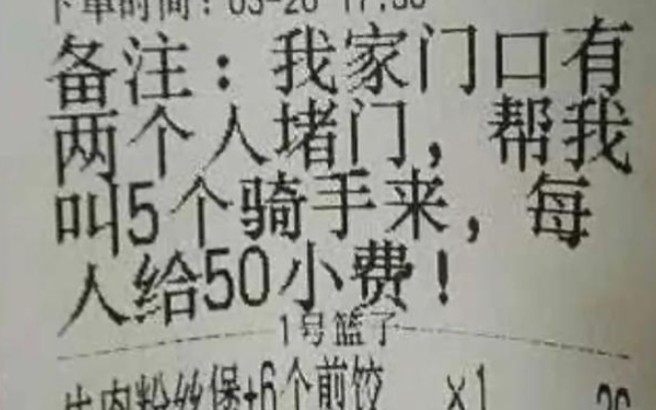 下单时间：03-20 17:30
备注：我家门口有
两个人堵门，帮我
叫5个骑手来，每
人给50小费！
1号篮子
牛肉粉丝煲+6个煎饺 x1